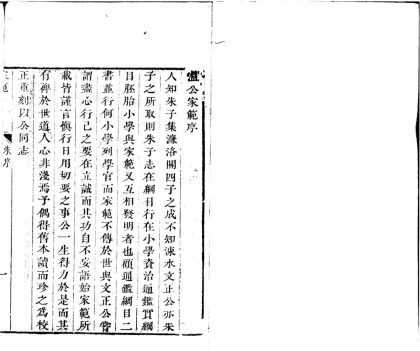 溫公家範序
人知朱子集濂洛關四子之成不知涑水文正公亦朱
子之所取則朱子志在綱目行在小學資治通鑑實綱
目胚胎小學與家範又互相發明者也顧通鑑綱目二
書並行何小學列學官而家範不傳於世與文正公嘗
謂盡心行己之要在立誠而其功自不妄語始家範所
載皆謹言慎行日用切要之事公一生得力於是而其
有裨於世道人心非淺焉予偶得舊本讀而珍之為校
正重刻以公同志
朱序